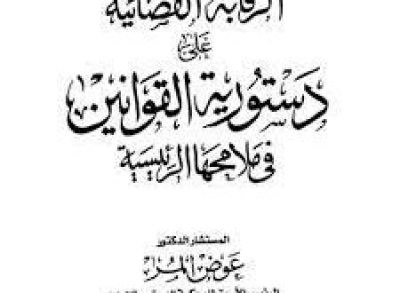 الرقابة القضائية
على
دستورية القوانين
في ملامحها الرئيسية
المستشار الدكتور
عوض المر